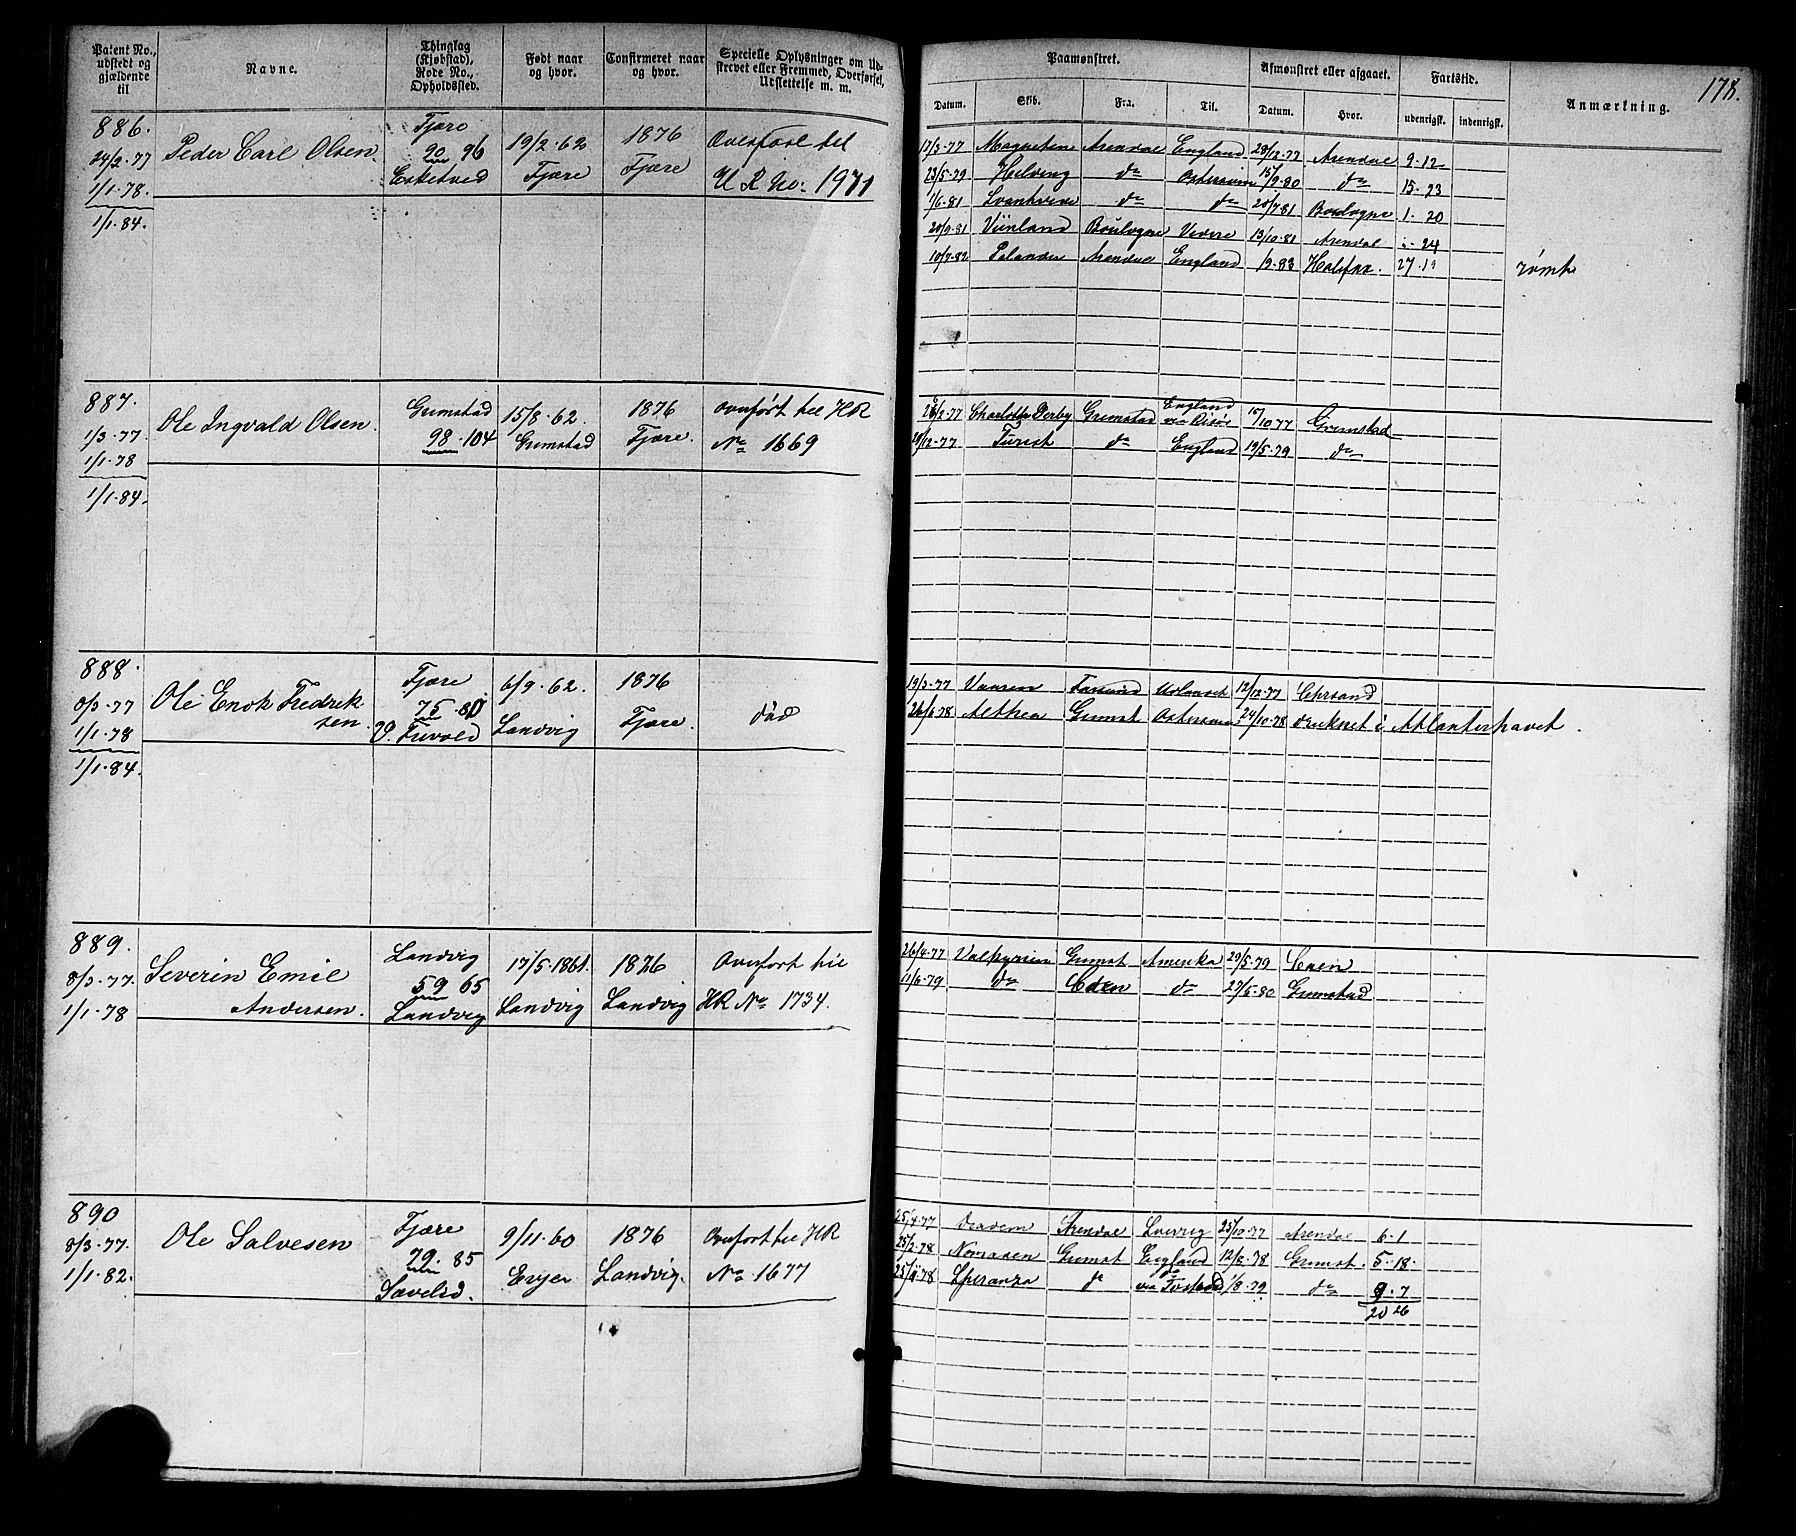 178.
Patent No., udstedt og gjældende til
Navne.
Thinglag (Kjøbstad), Rode No., Opholdssted.
Født naar og hvor.
Confirmeret naar og hvor.
Specielle Oplysninger om Udskrevet eller Fremmed, Overførsel, Udslettelse m. m.
Paamønstret.
Datum. Skib. Fra. Til.
Afmønstret eller afgaaet.
Datum. Hvor.
Fartstid.
udenrigsk. indenrigsk.
Anmærkning.
886.
24/2-77
1/1-78.
1/1-84.
Peder Carl Olsen
Fjære
90 96
19/2-62
Fjære
1876
Fjære
Overført til
U R No: 1971
17/3-77 Magneten Arendal England 28/12-77 Arendal 9-12
23/5-79 do 15/9-80 do 15-23
1/6-81 do do 20/7-81 Boulogne 1-20
20/9-81 Viinland Boulogne 13/10-81 Arendal -24
10/9-82 Palander Arendal England /9-83 Halifax.
rømt
887.
1/3-77
1/1-78
1/1-84.
Ole Ingvald Olsen.
Grimstad
98-104
15/8-62.
Grimstad
1876
Fjære.
Overført til HR
No 1669
/2-77 Charlotte Derby Grimstad England via Risør 15/10 77 Grimstad
/12-77 Turist do England 19/5-79 do
888.
8/3-77
1/1-78
1/1-84.
Ole Enok Fredriksen.
Fjære
75-80
6/9-62.
Landvig
1876
Fjære.
død
19/3-77 12/12-77 Chrsand
26/6-78 Althea Grimst Østersøen 24/10-78 druknet i Atlanterhavet.
889.
8/3-77.
1/1-78
Severin Emil
Andersen.
Landvig
59 65
Landvig
17/5-1861.
Landvig
1876
Landvig
Overført til
HR No 1734.
26/4-77 Valkyrien Grimst Amerika 29/5-79 Caen
11/6-79 do Caen do 27/5-80 Grimstad
890
8/3-77.
1/1-82.
Ole Salvesen
Fjære
79-85
9/11-60
1876
Landvig.
Overført til HR
No 1677
25/4-77 Diadem Arendal 25/10-77 Arendal 6-1
25/2-78 Grimst England 12/8-78 Grimst. 5-18.
25/11-78 Speranza do via 1/9-79 do 9-7
20 26